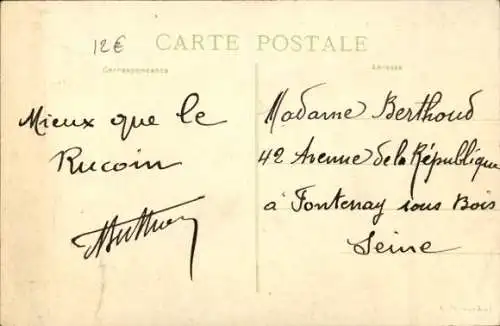 12€
CARTE POSTALE
Correspondance
Adresse
Mieux que le
Rucoin
Madame Berthoud
42 Avenue de la République
à Fontenay sous Bois
Seine